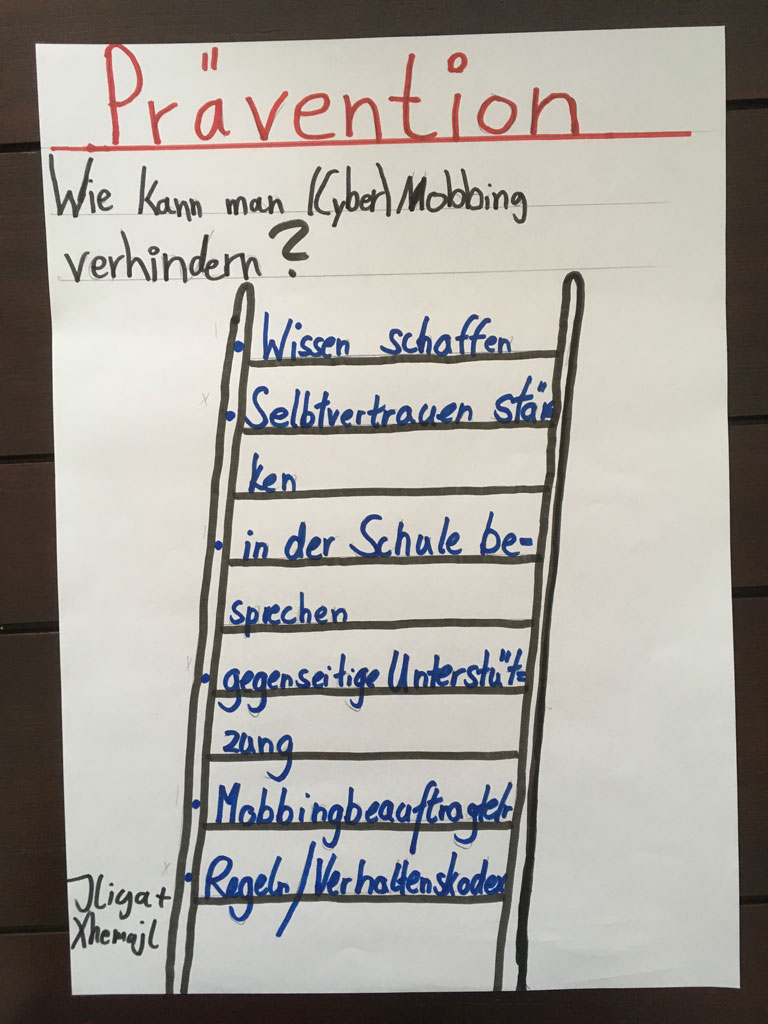 Prävention
Wie kann man (Cyber)Mobbing
verhindern?
• Wissen schaffen
• Selbtvertrauen stär
ken
• in der Schule be-
sprechen
• gegenseitige Unterstüt=
zung
• Mobbingbeauftragter
• Regeln/Verhaltenskodex
Jliga+
Xhemajl